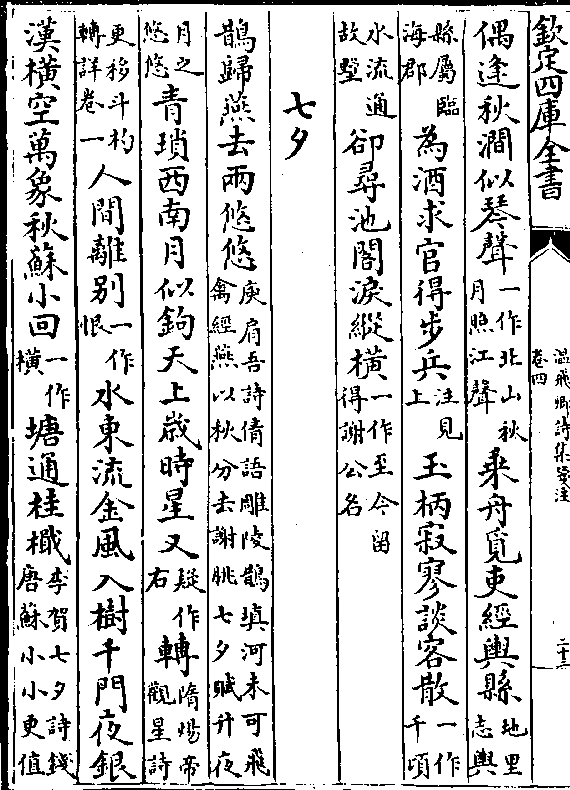 欽定四庫全書
溫飛卿詩集箋注
卷四
二十三
偶逢秋澗似琴聲一作北山秋月照江聲乘舟覓吏經輿縣地里志輿
縣屬臨海郡為酒求官得步兵注見上玉柄寂寥談客散一作千頃
水流通故墅卻尋池閣淚縱橫一作至今留得謝公名
七夕
鵲歸燕去兩悠悠庾肩吾詩倩語雕陵鵲填河未可飛禽經燕以秋分去謝朓七夕賦升夜
月之悠悠青瑣西南月似鉤天上歲時星又疑作右轉隋煬帝觀星詩
更移斗杓轉詳卷一人間離别一作恨水東流金風入樹千門夜銀
漢橫空萬象秋蘇小回一作橫塘通桂檝李賀七夕詩錢唐蘇小小更值